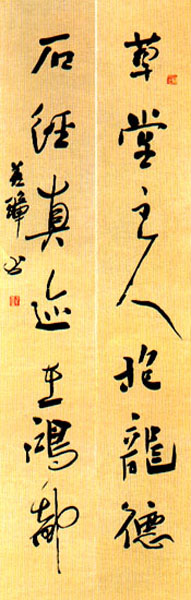 草堂主人抱龍德
石經真迹在鴻都